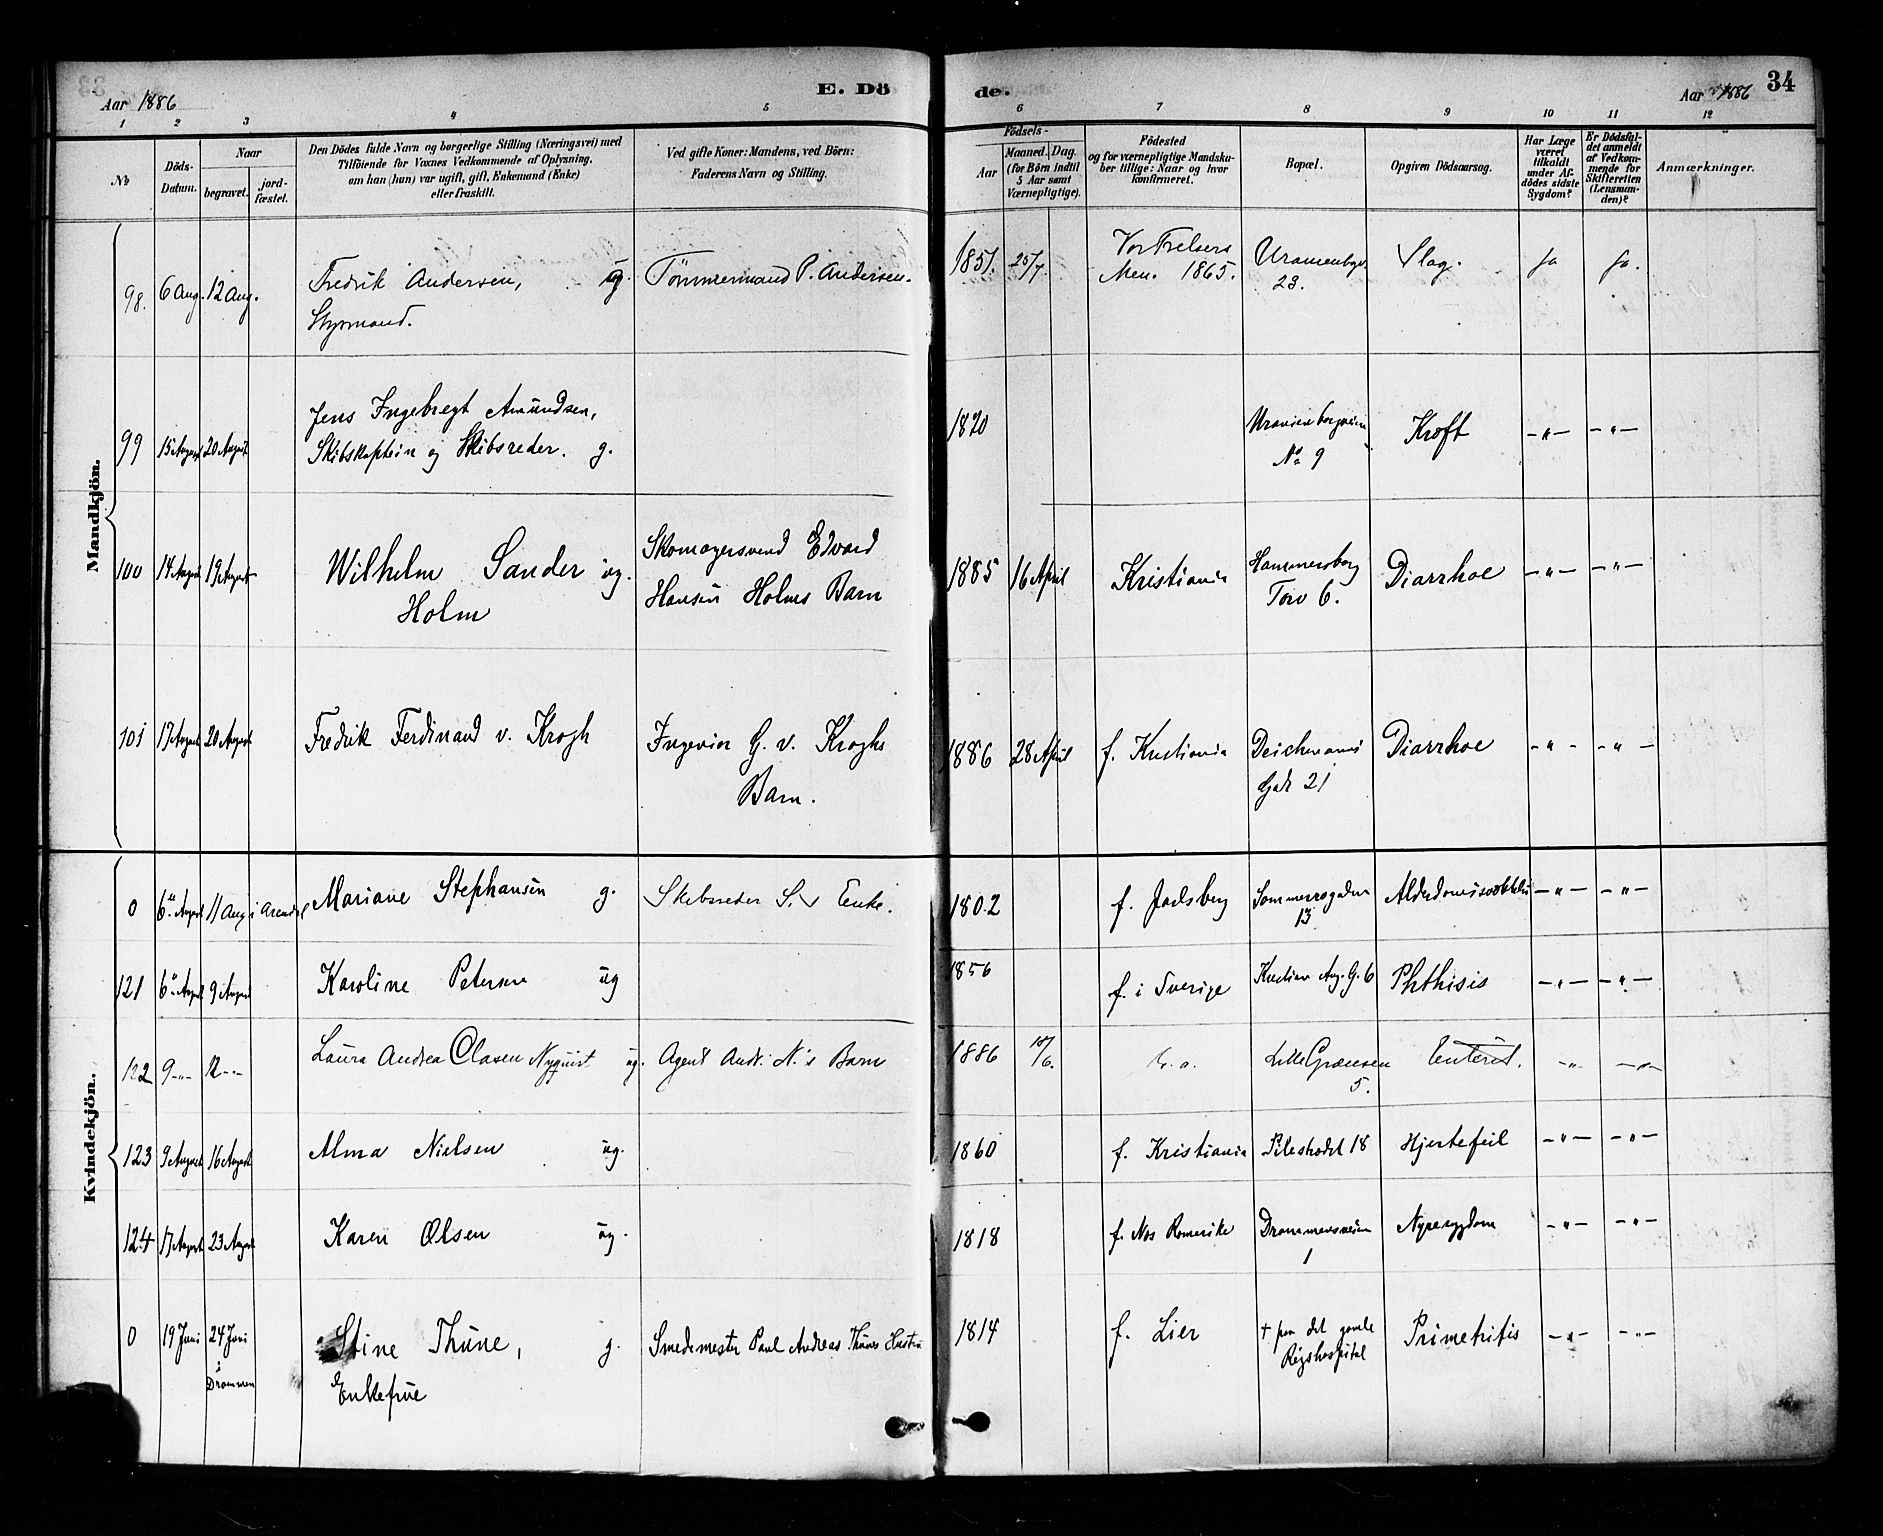 33
Aar 1886
E. Dö
de.
Aar 1886
34
1 2 3 4 5 6 7 8 9 10 11 12
№
Döds-
Datum.
Naar
begravet.
jord-
fæstet.
Den Dödes fulde Navn og borgerlige Stilling (Næringsvei) med
Tilföiende for Voxnes Vedkommende af Oplysning,
om han (hun) var ugift, gift, Enkemand (Enke)
eller fraskilt.
Ved gifte Koner: Mandens, ved Börn:
Faderens Navn og Stilling.
Födsels-
Aar
Maaned. Dag.
(for Börn indtil
5 Aar samt
Værnepligtige).
Födested
og for værnepligtige Mandska-
ber tillige: Naar og hvor
konfirmeret.
Bopæl.
Opgiven Dödsaarsag.
Har Læge
været
tilkaldt
under Af-
dödes sidste
Sygdom?
Er Dödsfal-
det anmeldt
af Vedkom-
mende for
Skifteretten
(Lensman-
den)?
Anmærkninger.
Mandkjön.
98. 6 Aug. 12 Aug. Fredrik Andersen, ug. Tömmermand P. Andersen. 1851. 25/7. Vor Frelsers Slag. ja ja.
Styrmand.
Men. 1865.
23.
99 15 August 20 August Jens Ingebregt Amundsen, 1820 Kroft -"- -"-
Skibskaptein og Skibsreder. g.
No 9
100 14 August 19 August Wilhelm Sander ug. Skomagersvend Edvard 1885 16 April Kristiania Hammersborg Diarrhoe -"- -"-
Holm Hansen Holms Barn Torv 6.
101 17 August 20 August Fredrik Ferdinand v. Krogh Ingeniør G. v. Kroghs 1886 28 April f. Kristiania Deichmanns Diarrhoe -"- -"-
Barn. Gade 21
Kvindekjön.
0 6te August 11 Aug i Arendal Mariane Stephansen g. Skibsreder S.s Enke. 1802 f. Jarlsberg Sommerrogaden -"- -"-
13
121 6te August 9 August Karoline Petersen ug 1856 f. i Sverige Kristian Aug. G. 6 Phthisis -"- -"-
122 9 -"- 12 -"- Laura Andrea Clasen Nyquist ug. Agent Andr. N.'s Barn 1886 /6. Lille Grænsen Enterit. -"- -"-
5.
123 9 August 16 August Alma Nielsen ug. 1860 f. Kristiania Pilestrædet 18 Hjertefeil -"- -"-
124 17 August 23 August Karen Olsen ug. 1818 f. Nes Romerike Drammensveien Nyresygdom -"- -"-
1
0 19 Juni 24 Juni Stine Thune, g. Smedemester Paul Andreas Thunes Hustru 1814 f. Lier † paa det gamle -"- -"-
i Drammen Enkefrue Rigshospital